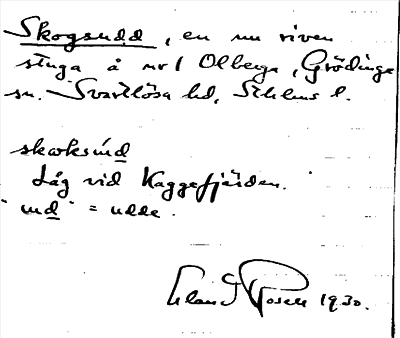 Skogsudd, en nu riven
stuga å nr 1 Olberga, Grödinge
sn. Svartlösa hd, Sthlms l.
skoksúd
Låg vid Kaggefjärden.
"ud" = udde.
Rosell 1930.